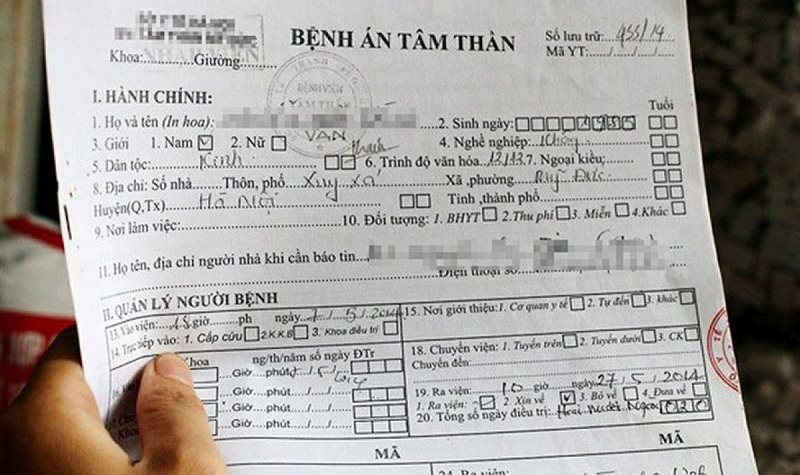 BỆNH ÁN TÂM THẦN
Số lưu trữ: 455/14
Mã YT:
Khoa: Giường
BỆNH VIỆN
TÂM THẦN
I. HÀNH CHÍNH:
Tuổi
1. Họ và tên (In hoa): VĂN 2. Sinh ngày:
3. Giới 1. Nam 2. Nữ 4. Nghề nghiệp: Không
5. Dân tộc: Kinh 6. Trình độ văn hóa 12/12 7. Ngoại kiều
8. Địa chỉ: Số nhà Thôn, phố Xuy Xá Xã ,phường
Huyện(Q,Tx) Hà Nội Tỉnh ,thành phố
9. Nơi làm việc: 10. Đối tượng: 1. BHYT 2. Thu phí 3. Miễn 4. Khác
11. Họ tên, địa chỉ người nhà khi cần báo tin
Điện thoại số
II. QUẢN LÝ NGƯỜI BỆNH
13. Vào viện: 15 giờ ph ngày 5.2014 15. Nơi giới thiệu: 1. Cơ quan y tế 2. Tự đến 3. khác
14. Trực tiếp vào: 1. Cấp cứu 2.K.K.B 3. Khoa điều trị
Khoa ng/th/năm số ngày ĐTr
18. Chuyển viện: 1. Tuyến trên 2. Tuyến dưới 3. CK
Chuyển đến
Giờ phút
Giờ....phút
Giờ....phút
Giờ....phút
19. Ra viện: 10 giờ ngày 27.5.2014
1. Ra viện: 2. Xin về 3. Bỏ về 4. Đưa về
20. Tổng số ngày điều trị: Hai mươi ngày 020
MÃ MÃ